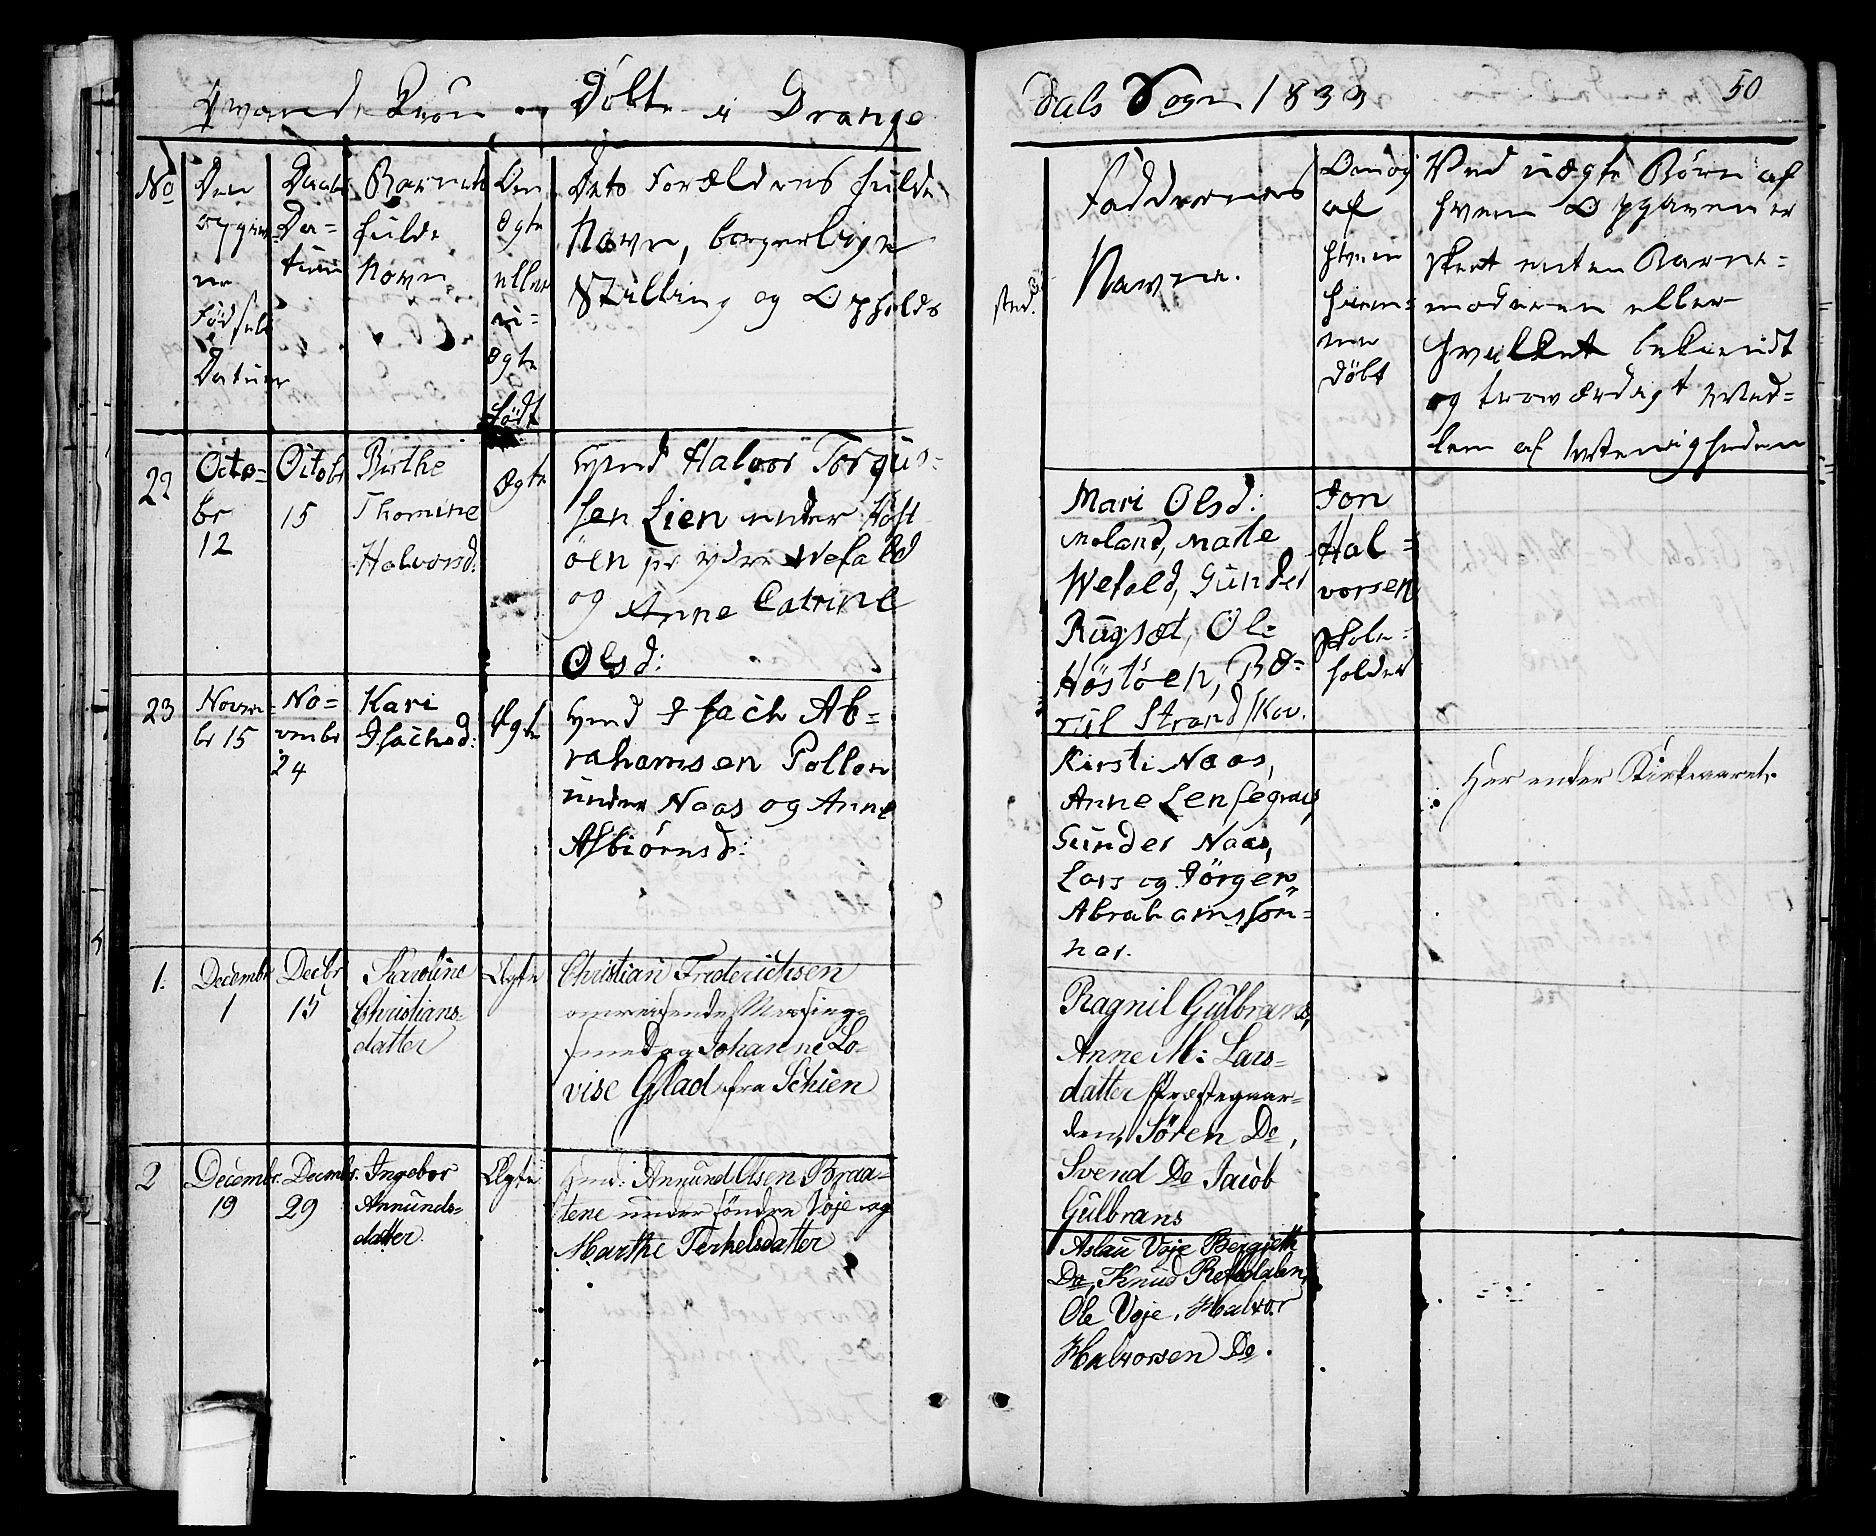 Døbte i Drange
dals Sogn 1833
50
No
Den
opgiv=
ne
Fødsels
Datum
Daabs
Da=
tum
Barnets
fulde
Navn
Den
ægte
eller
u=
ægte
født
Dets Forældres fulde
Navn, borgerlige
Stilling og Opholds
sted.
Faddernes
Navne.
Om og
af
hvem
hiem=
me
døbt
Ved uægte Børn af
hvem Opgaven er
skeet enten Barne=
moderen eller
hvilket bekiendt
og troværdigt Med=
lem af Menigheden
22
Octo=
br
12
Octobr
15
Birthe
Thomine
Halvorsd:
Ægte
Halvor Torgus=
sen Lien under Høst
öen på ydre Wefald
og Anne Catrine
Olsd:
Mari Olsd:
Moland, Marte
Wefald, Gunder
Rugsæt, Ol:
Höstöen, Bø=
ril Strand /Kov.
Jon
Hal=
vorsen
Skole=
holder
23
Novem=
br 15
No=
vembr
24
Kari
Isachsd:
Ægte
Isach Ab=
rahamsen Pollen
under Naas og Anne
Asbiörnsd:
Kirsti Naas,
Anne Lensegrav,
Gunder Naas,
Lars og Jörgen
Abrahamssön=
ner.
Her ender Kirkeaaret.
1.
Decembr
1
Decbr
15
Karoline
Christians=
datter
Ægte
Christian Friderichsen
omreisende Messing=
smed og Johanne Lo=
vise Gslad fra Schien
Ragnil Gulbrans,
Anne M: Lars=
datter Præstegaar=
den, Sören Do,
Svend Do Jacob
Gulbrans
2
Decembr.
19
Decembr.
29
Ingebor
Annunds=
datter
Ægte
Annund Olsen Braa=
tene under söndre Voje og
Marthe Terkelsdatter
Aslau Voje Bergitte
Do, Knud Refsdalen,
Ole Voje, Halvor
Halvorsen Do.